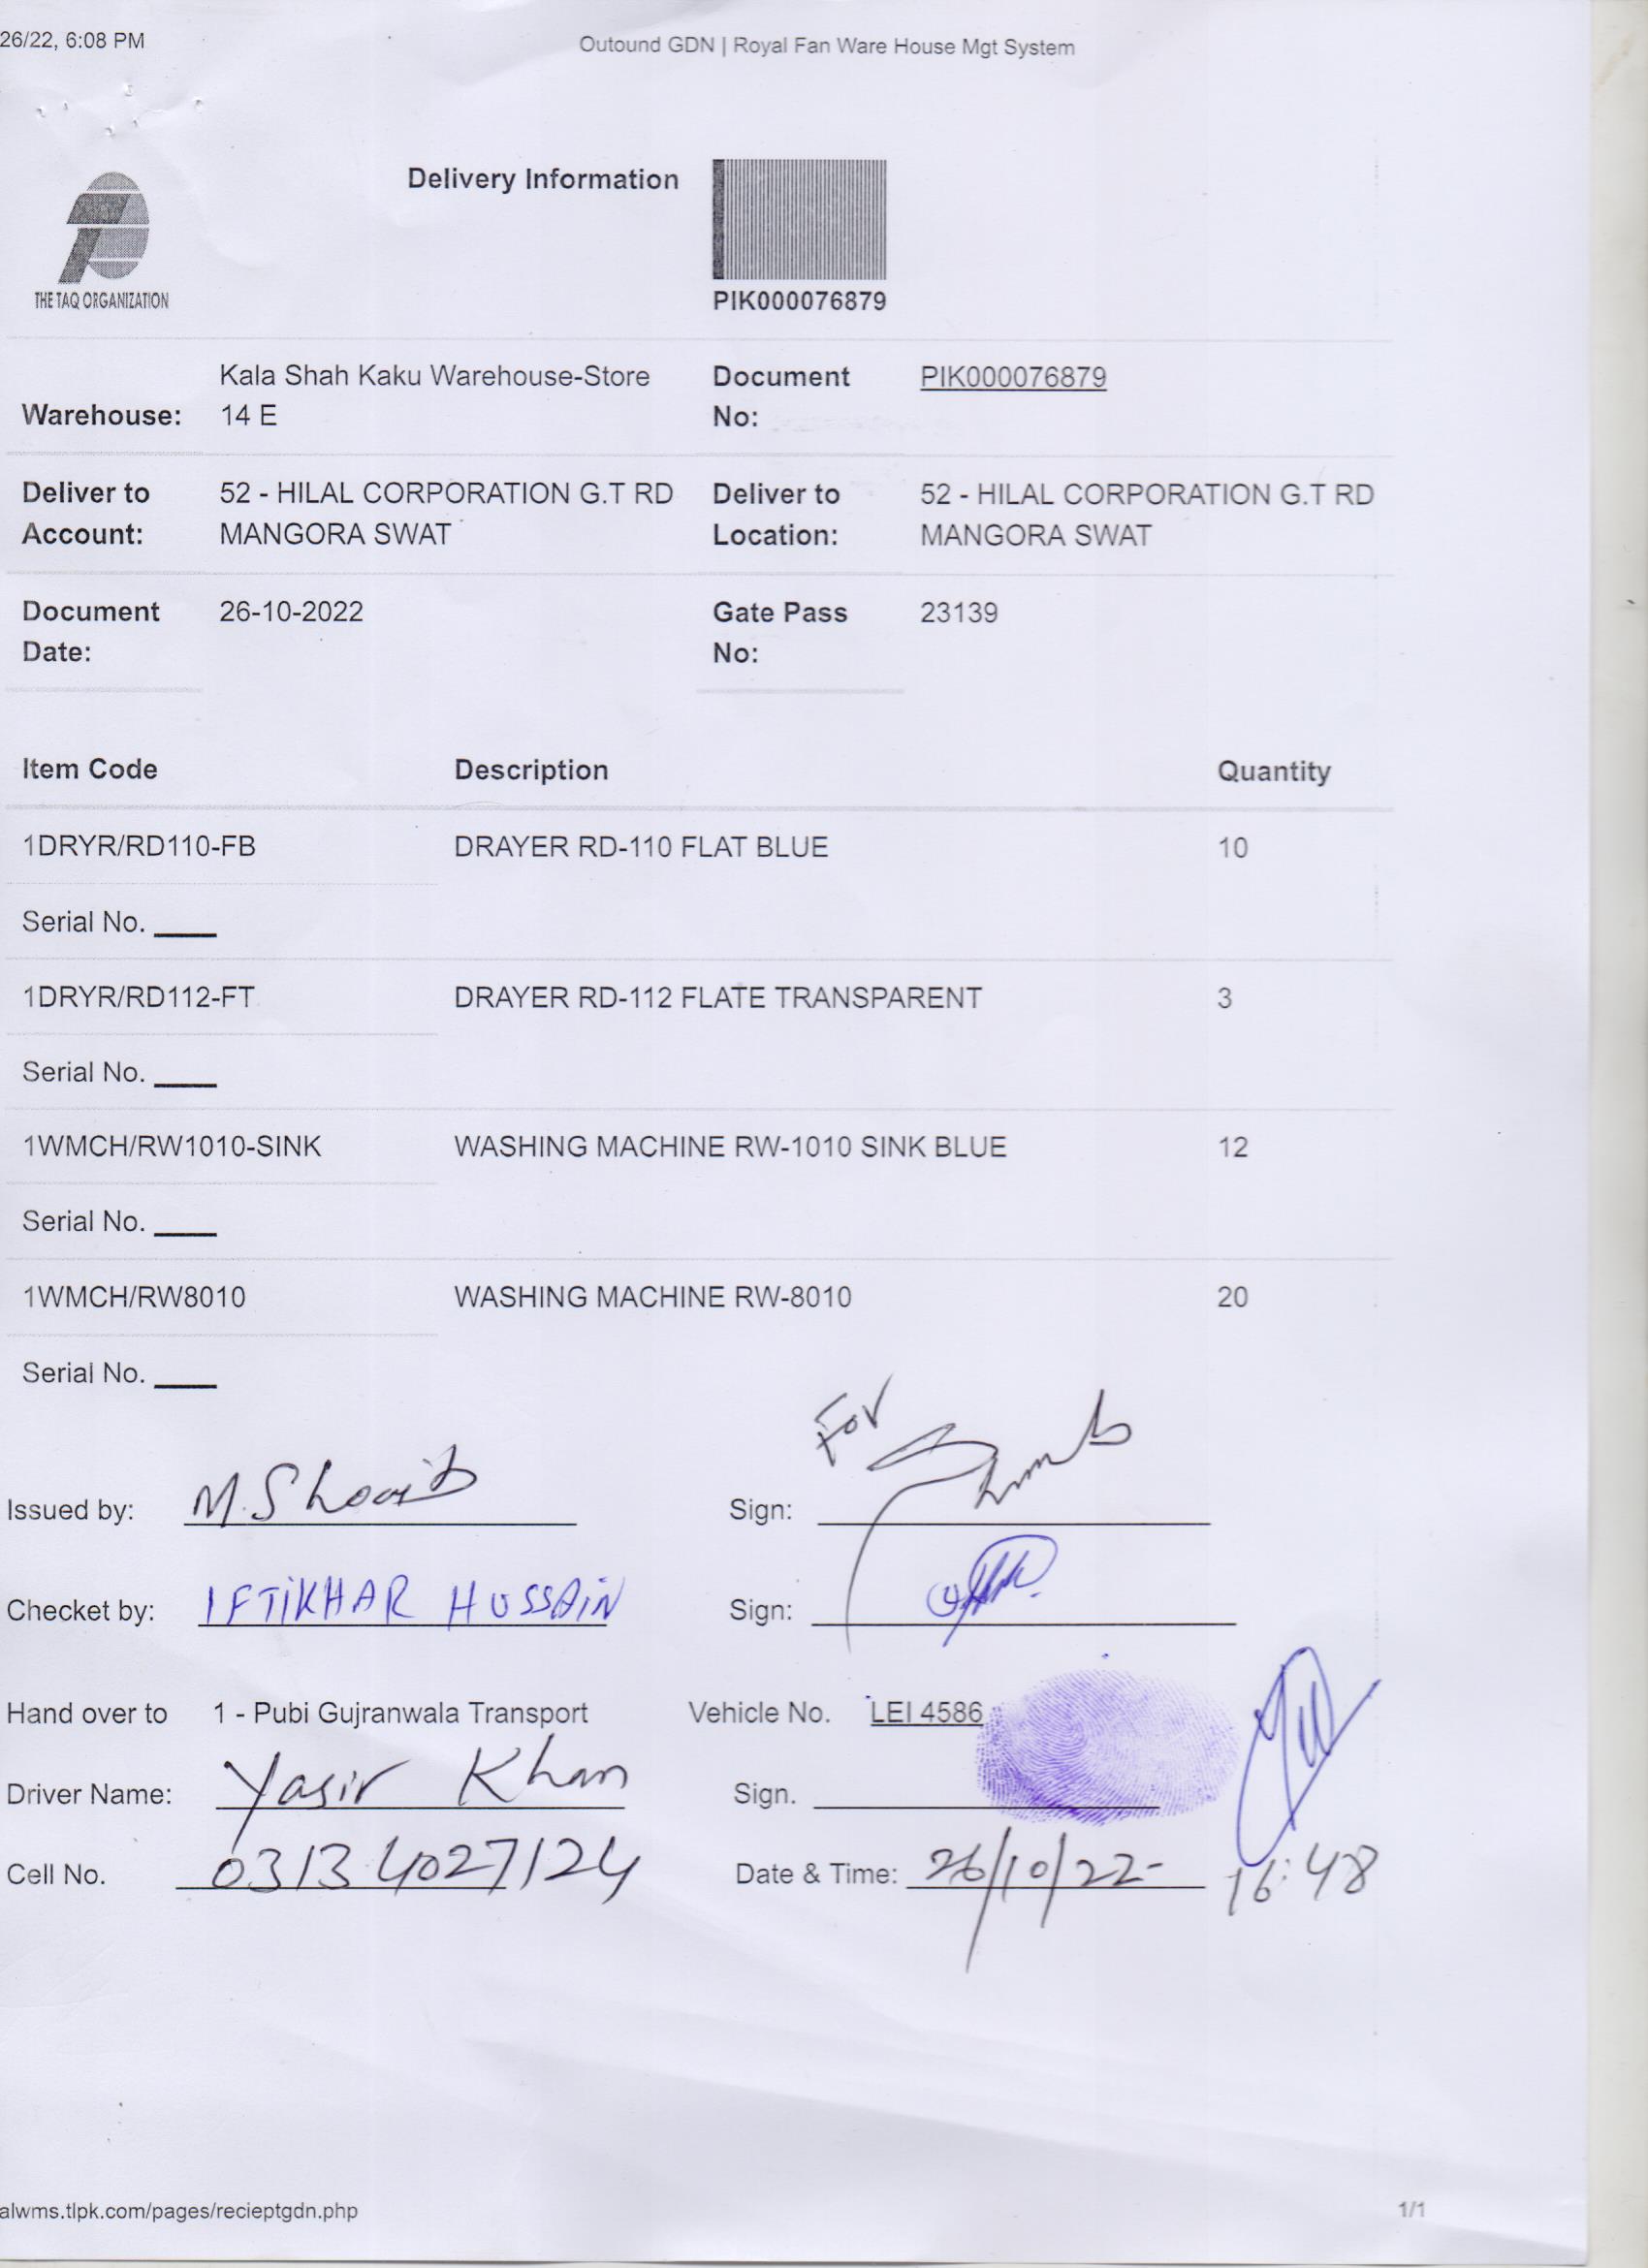 26/22, 6:08 PM
Outound GDN | Royal Fan Ware House Mgt System
THE TAQ ORGANIZATION
Delivery Information
PIK000076879
Warehouse: Kala Shah Kaku Warehouse-Store 14 E
Document No: PIK000076879
Deliver to Account: 52 - HILAL CORPORATION G.T RD MANGORA SWAT
Deliver to Location: 52 - HILAL CORPORATION G.T RD MANGORA SWAT
Document Date: 26-10-2022
Gate Pass No: 23139
Item Code Description Quantity
1DRYR/RD110-FB DRAYER RD-110 FLAT BLUE 10
Serial No.
1DRYR/RD112-FT DRAYER RD-112 FLATE TRANSPARENT 3
Serial No.
1WMCH/RW1010-SINK WASHING MACHINE RW-1010 SINK BLUE 12
Serial No.
1WMCH/RW8010 WASHING MACHINE RW-8010 20
Serial No.
Issued by: M. Shoaib Sign: For
Checket by: IFTIKHAR HUSSAIN Sign:
Hand over to 1 - Pubi Gujranwala Transport Vehicle No. LEI 4586
Driver Name: Yasir Khan Sign.
Cell No. 0313 4027124 Date & Time: 26/10/22- 16:48
alwms.tlpk.com/pages/recieptgdn.php 1/1